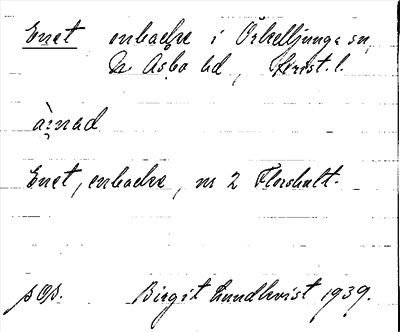 Enet enbacke i Örkelljunga sn,
N Åsbo hd, Krist. l.
à:nəd
Enet, enbacke, nr 2 Florshult.
s O s. Birgit Lundkvist 1939.